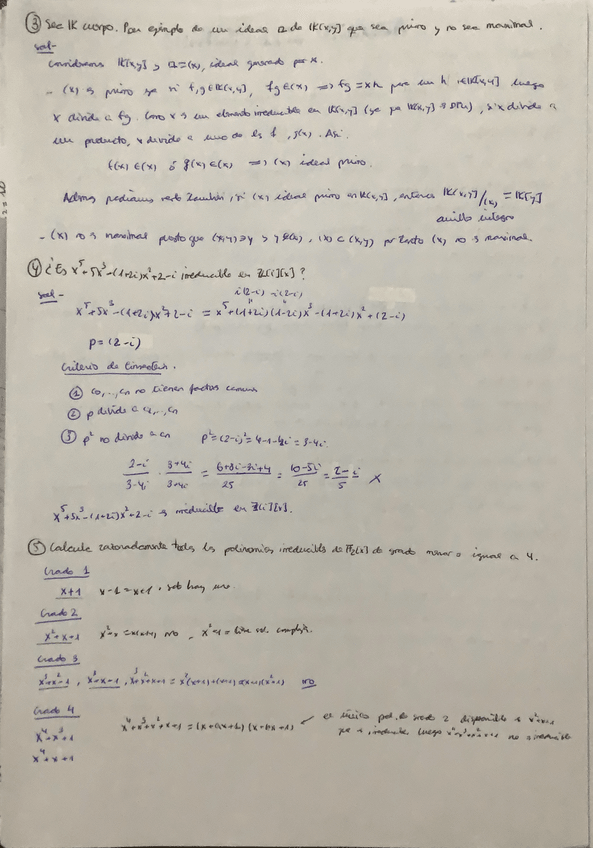 ③ Sea K cuerpo. Pon ejemplo de un ideal a de K[x,y] que sea primo y no sea maximal.
sol-
Consideramos K[x,y] y a=(x), ideal generado por x.
- (x) es primo ya si f,g∈K[x,y], fg∈(x) => fg=xh para un h∈K[x,y] luego
x divide a fg. Como x es un elemento irreducible en K[x,y] (ya que K[x,y] es DFU), si x divide a
un producto, x divide a uno de los f, g(x). Así
f(x)∈(x) ó g(x)∈(x) => (x) ideal primo.
Además podíamos verlo también, si (x) ideal primo en K[x,y], entonces K[x,y]/(x) = K[y]
anillo íntegro
- (x) no es maximal puesto que (x,y)∋y, (x)⊂(x,y) por tanto (x) no es maximal.
④ ¿Es x⁵+5x³-(1+2i)x²+2-i irreducible en Z[i][x]?
sol-
i(2-i) -i(2-i)
x⁵+5x³-(1+2i)x²+2-i = x⁵+(1+2i)(1-2i)x³-(1+2i)x²+(2-i)
p=(2-i)
Criterio de Eisenstein.
① c₀,...,cn no tienen factores comunes
② p divide a c₁,...,cn
③ p² no divide a cn p²=(2-i)²=4-1-4i=3-4i.
2-i/3-4i · 3+4i/3+4i = 6+8i-3i+4/25 = 10-5i/25 = 2-i/5 X
x⁵+5x³-(1+2i)x²+2-i es irreducible en Z[i][x].
⑤ Calcule razonadamente todos los polinomios irreducibles de F₂[x] de grado menor o igual a 4.
Grado 1
x+1 x-1=x+1, solo hay uno.
Grado 2
x²+x+1 x²+x=x(x+1) no, x²+1=
Grado 3
x³+x²+1, x³+x+1, x³+x²+x+1=x²(x+1)+(x+1)=(x+1)(x²+1) no
Grado 4
x⁴+x³+1 x⁴+x³+x²+x+1=(x+ax+b)(x+bx+1) el único pol. de grado 2 disponible es x²+x+1
x⁴+x+1 que es irreducible luego x⁴+x³+x²+x+1 no es irreducible